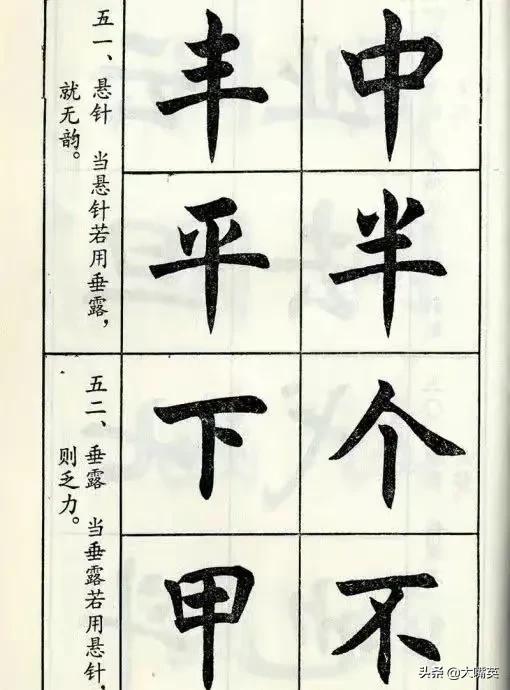 五一、悬针 当悬针若用垂露，
就无韵。
中半
丰平
五二、垂露 当垂露若用悬针，
则乏力。
个不
下甲
头条 @大嘴英